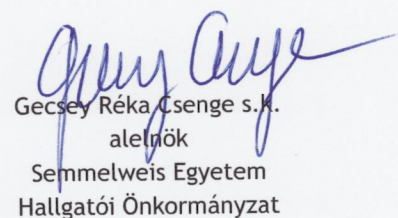 Gecsey Réka Csenge s.k.
alelnök
Semmelweis Egyetem
Hallgatói Önkormányzat